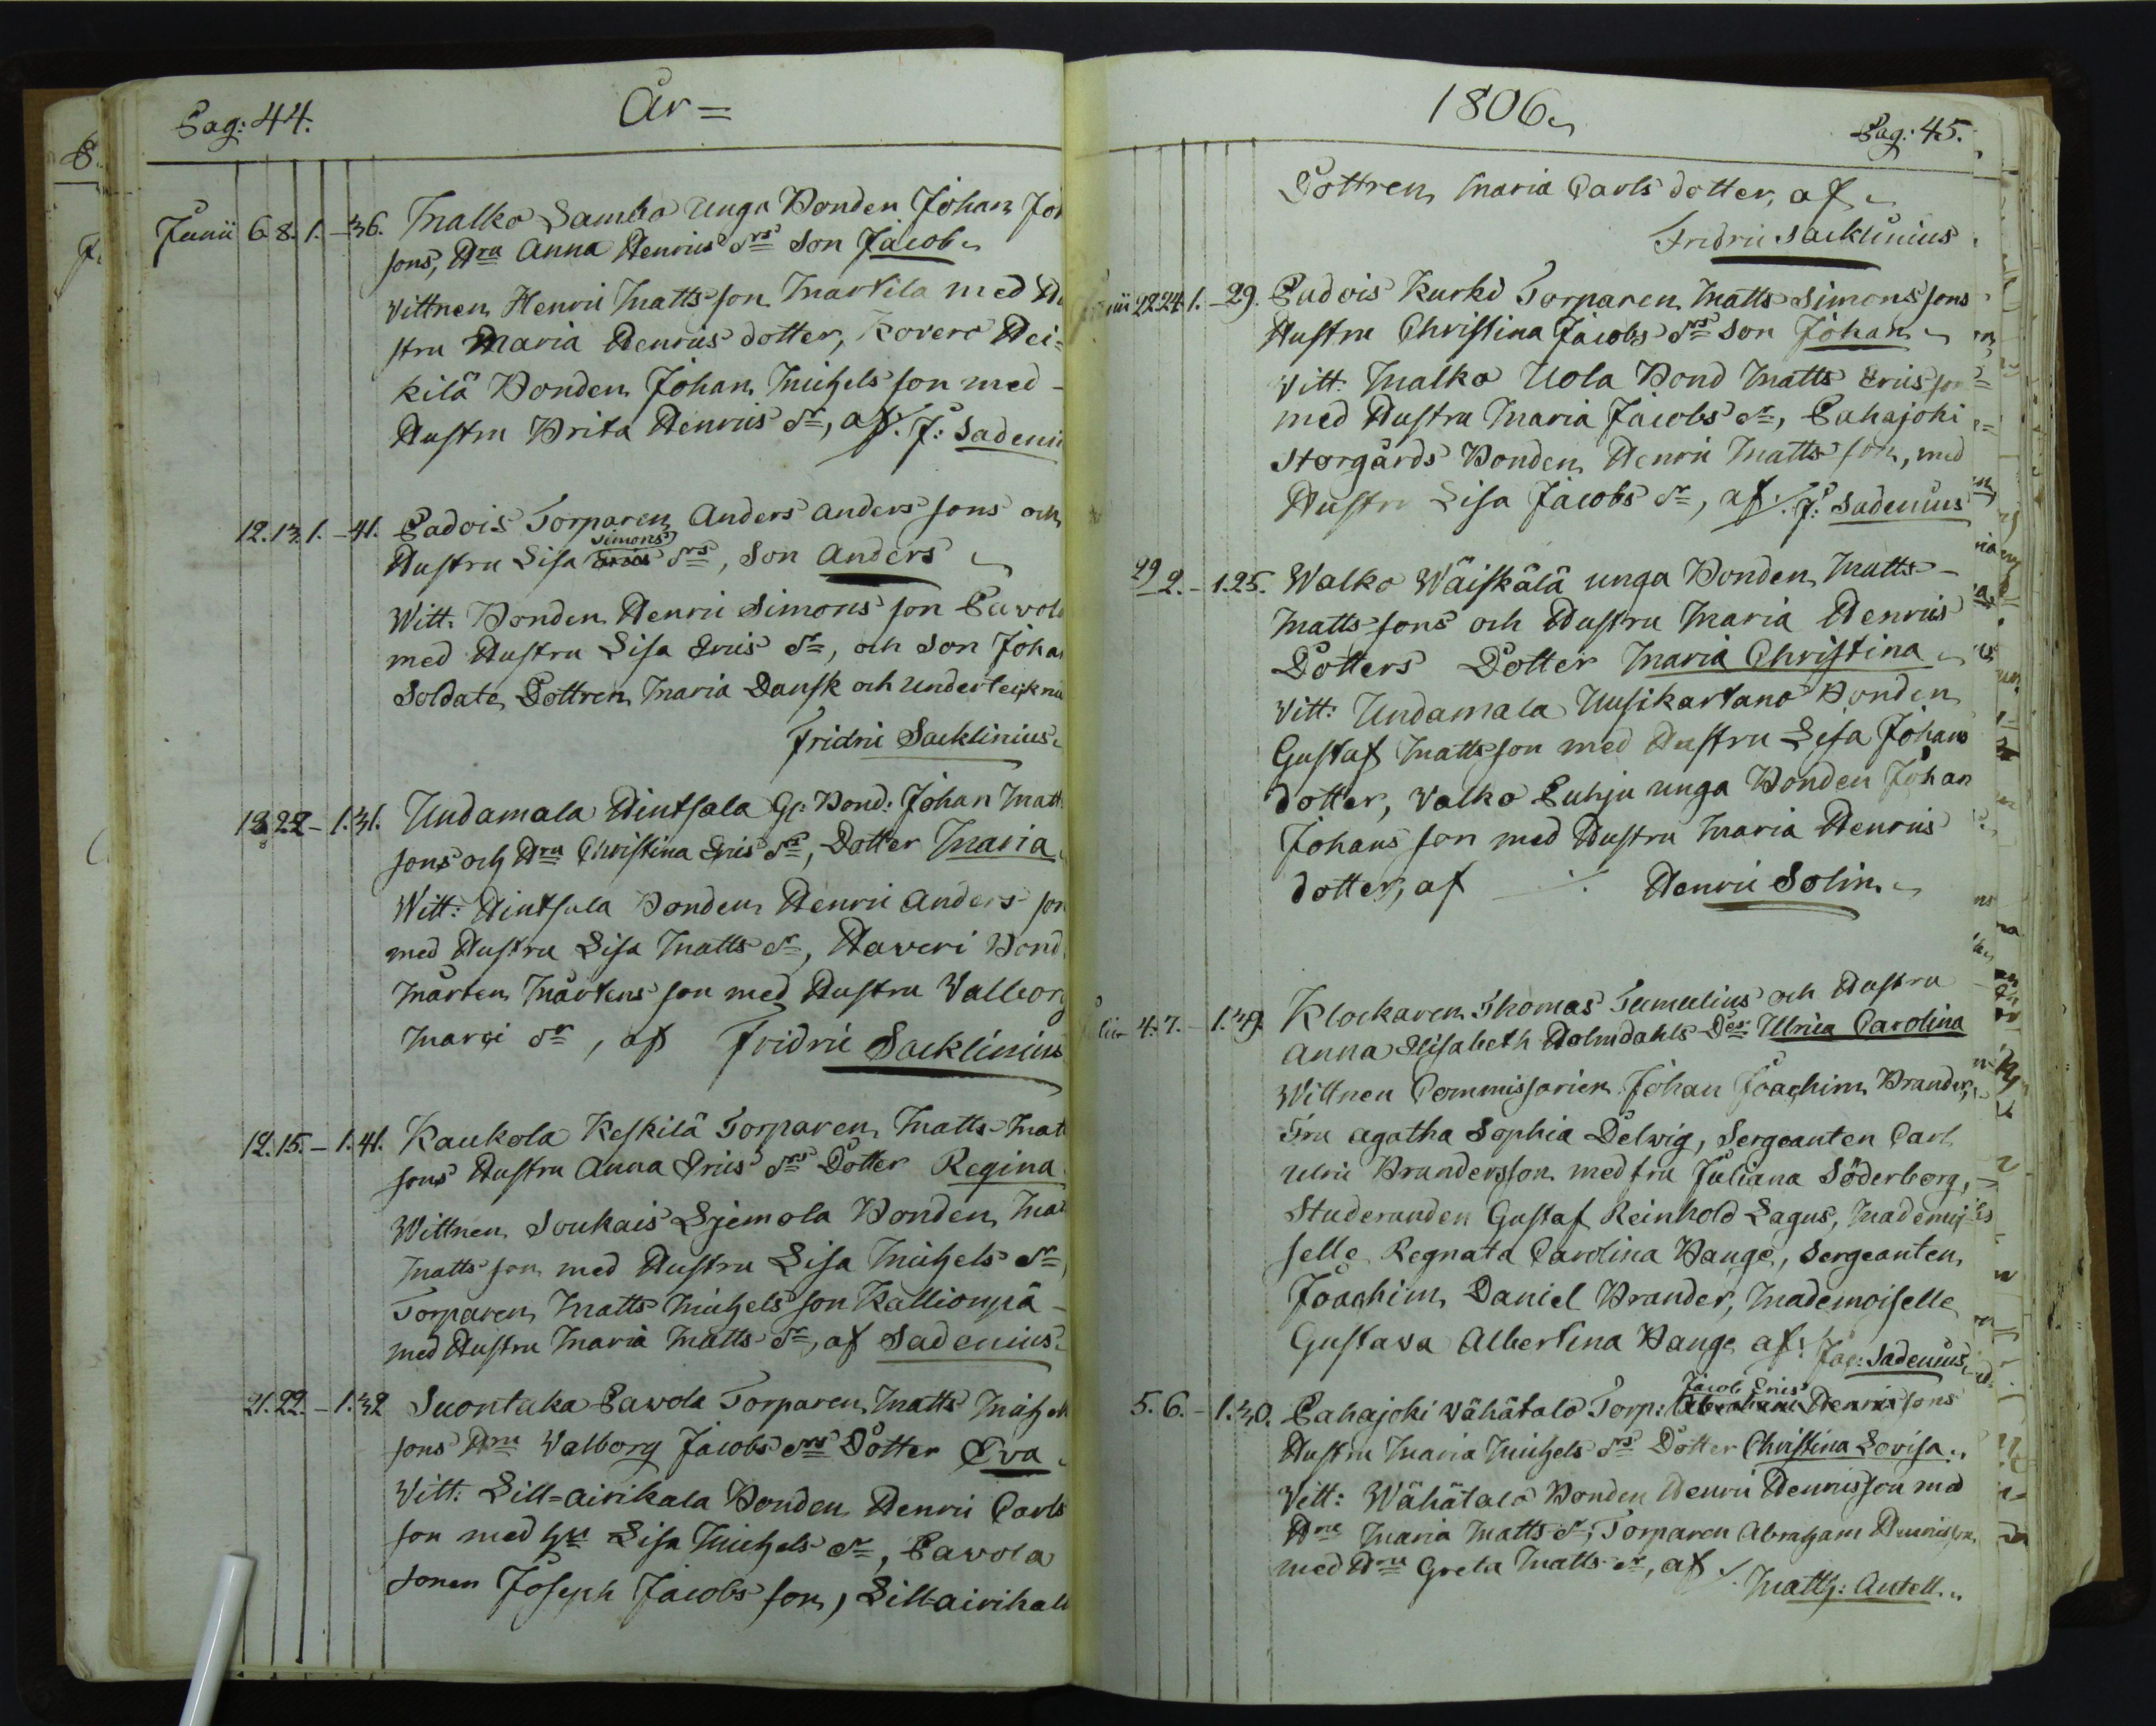 Pag: 44.
År =
Junii 6. 8. 1. - 36. Malko Sambo Unga Bonden Johan Joh
sons, Hru Anna Henrics drs Son Jacob
Vittnen Henric Matts son Marttila med Hu
stru Maria Henrics dotter, Kovero Hei=
kilä Bonden Johan Michels son med -
Hustru Brita Henrics dr, af. J: Sadenii
12. 13. 1. - 41. Padois Torparen Anders Anders sons och
Simons
Hustru Lisa Erics drs, Son Anders
Witt. Bonden Henric Simons son Pavola
med Hustru Lisa Erics dr, och Son Johan
Soldate Dottren Maria Dansk och Underteckna
Fridric Sacklinius
22 - 1. 31. Undamala Hintsala Gl: Bond: Johan Matt
sons och Hru Christina Erics drs, Dotter Maria
Witt: Hintsala Bonden Henric Anders son
med Hustru Lisa Matts dr, Haveri Bond
Mårten Mårtens son med Hustru Valborg
Marci dr, af Fridric Sacklinius
12. 15. - 1. 41. Kaukola Keskilä Torparen Matts Mat
sons Hustru Anna Erics drs Dotter Regina
Wittnen Soukais Sjemola Bonden Mat
Matts son med Hustru Lisa Michels dr
Torparen Matts Michels son Kallionpä -
med Hustru Maria Matts dr, af Sadenius
21. 22. - 1. 32 Suontaka Pavola Torparen Matts Michels
sons Hru Valborg Jacobs drs Dotter Eva
Vitt: Lill=airikala Bonden Henric Carls
son med hu Lisa Michels dr, Pavola
Sonen Joseph Jacobs son, Lill-airikala
1806
Pag: 45.
Dottren Maria Carls dotter, af
Fridric Sacklinius
Junii 22 24 1. - 29. Padois Kurki Torparen Matts Simons sons
Hustru Christina Jacobs drs Son Johan
Vitt: Malko Uola Bond Matts Erics son
med Hustru Maria Jacobs dr, Pahajoki
Storgårds Bonden Henric Matts son, med
Hustru Lisa Jacobs dr, af. J: Sadenius
29 2. - 1. 25. Walko Wäiskälä unga Bonden Matts -
Matts sons och Hustru Maria Henrics
Dotters Dotter Maria Christina
Vitt: Undamala Uusikartano Bonden
Gustaf Matts son med Hustru Lisa Johans
dotter, Valko Puhju unga Bonden Johan
Johans son med Hustru Maria Henrics
dotter, af Henric Solin
4. 7. - 1. 39. Klockaren Thomas Tumulius och Hustru
Anna Elisabeth Holmdahls Dr Ulrica Carolina
Wittnen Commissarien Johan Joachim Brander,
Fru Agatha Sophia Delwig, Sergeanten Carl
Ulric Brandersson med fru Juliana Söderborg,
Studeranden Gustaf Reinhold Lagus, Mademoi
selle Regnata Carolina Bange, Sergeanten
Joachim Daniel Brander, Mademoiselle
Gustava Albertina Bange af: Jac: Sadenius
Jacob Erics
5. 6. - 1. 30. Pahajoki Vähätalo Torp: Abraham Henrics sons
Hustru Maria Michels drs Dotter Christina Lovisa.
Vitt: Wähätalo Bonden Henric Henricsson med
Hru Maria Matts dr, Torparen Abraham Henricsson
med Hru Greta Matts dr, af. Matth: Antell.